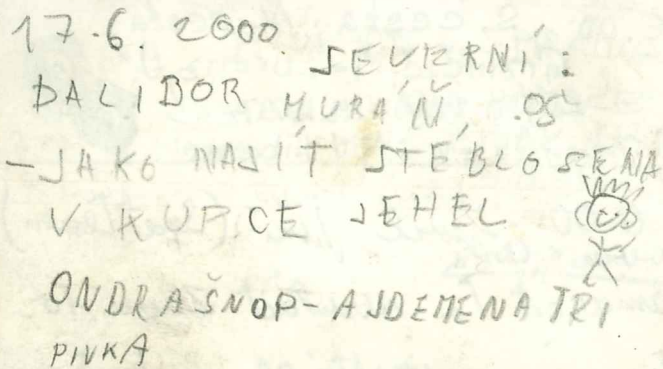 17.6. 2000. SEVERNÍ:
DALIBOR MURÁŇ
-JAKO NAJÍT STÉBLO SENA
V KUPCE JEHEL
ONDRAŠNOP-AJDEMENA TRI
PIVKA